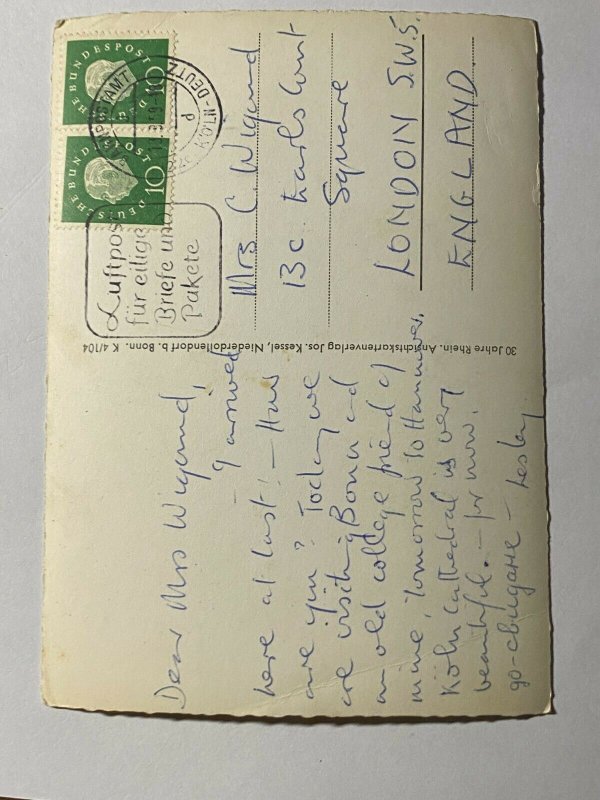 Dear Mrs Wigand,
– I arrived
here at last! – How
are you? Today we
are visiting Bonn and
an old college friend of
mine, tomorrow to Hannover.
Köln Cathedral is very
beautiful. – for now.
до-свидане – Lesley
30 Jahre Rhein. Ansichtskartenverlag Jos. Kessel, Niederdollendorf b. Bonn. K 4/104
DEUTSCHE BUNDESPOST
10
DEUTSCHE BUNDESPOST
10
KÖLN-DEUTZ
d
Luftpost
für eilige
Briefe und
Pakete
Mrs C. Wigand
13c Earls Court
Square
LONDON S.W.5.
ENGLAND